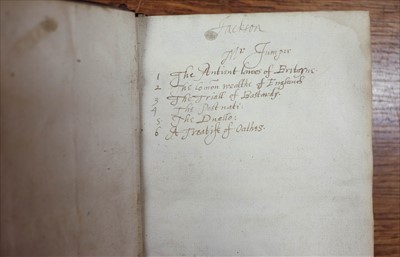 Jackson
Mr Juniper
1 The Antient lawes of Britayne
2 The Comon wealthe of England
3 The Triall of Bastardy.
4 The Post nati.
5 The Duello:
6 A Treatise of Oathes.